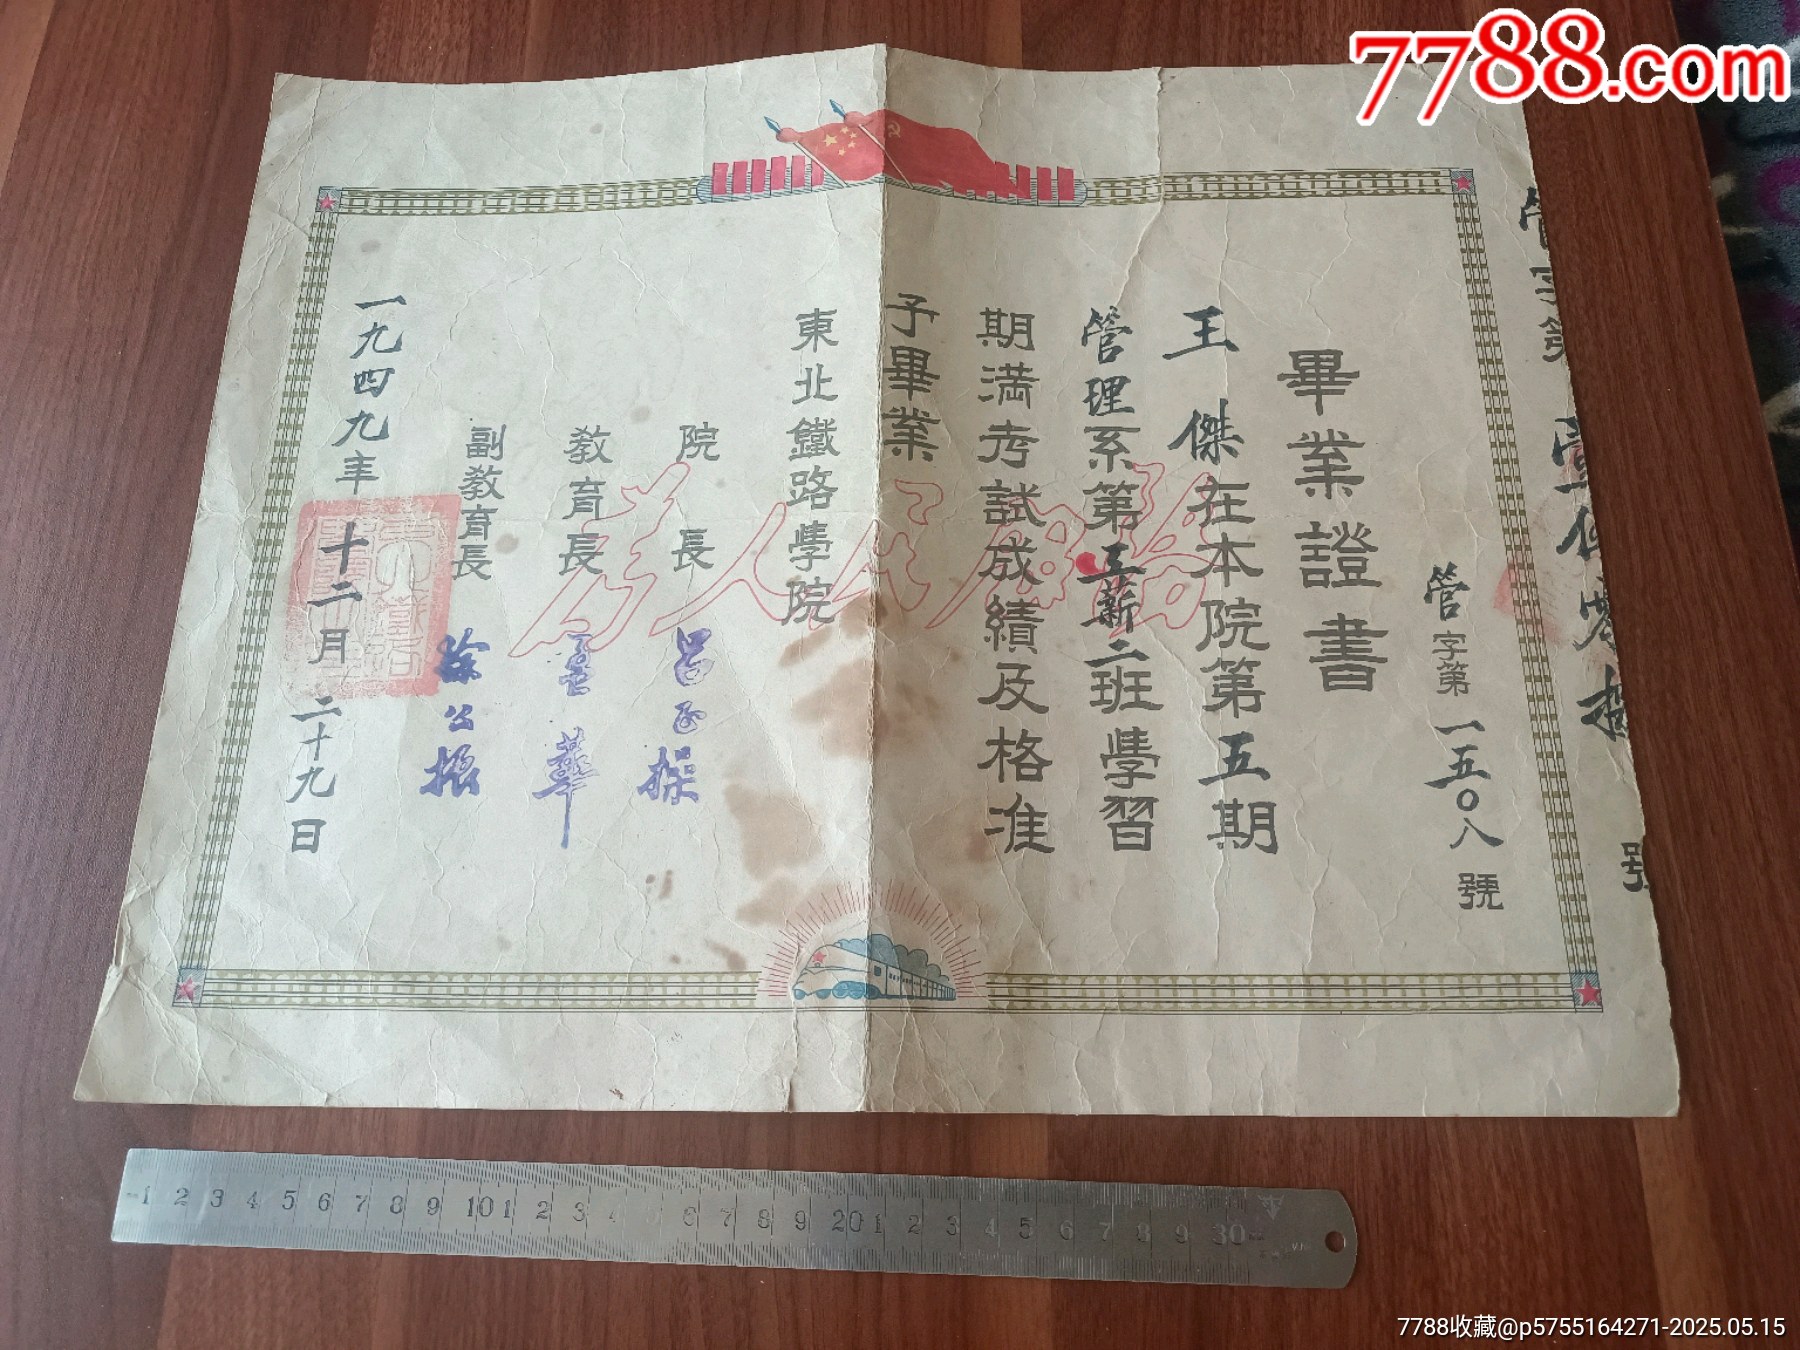 7788.com
畢業證書
管字第一五〇八號
王傑在本院第五期
管理系第三薪二班學習
期満考試成績及格准
予畢業
東北鐵路學院
院長 呂正操
教育長 華
副教育長 徐公振
一九四九年十二月二十九日
為人民服務
管字第壹仟零捌號
1 2 3 4 5 6 7 8 9 10 1 2 3 4 6 7 8 9 20 1 2 3 4 5 6 7 8 9 30
7788收藏@p5755164271-2025.05.15